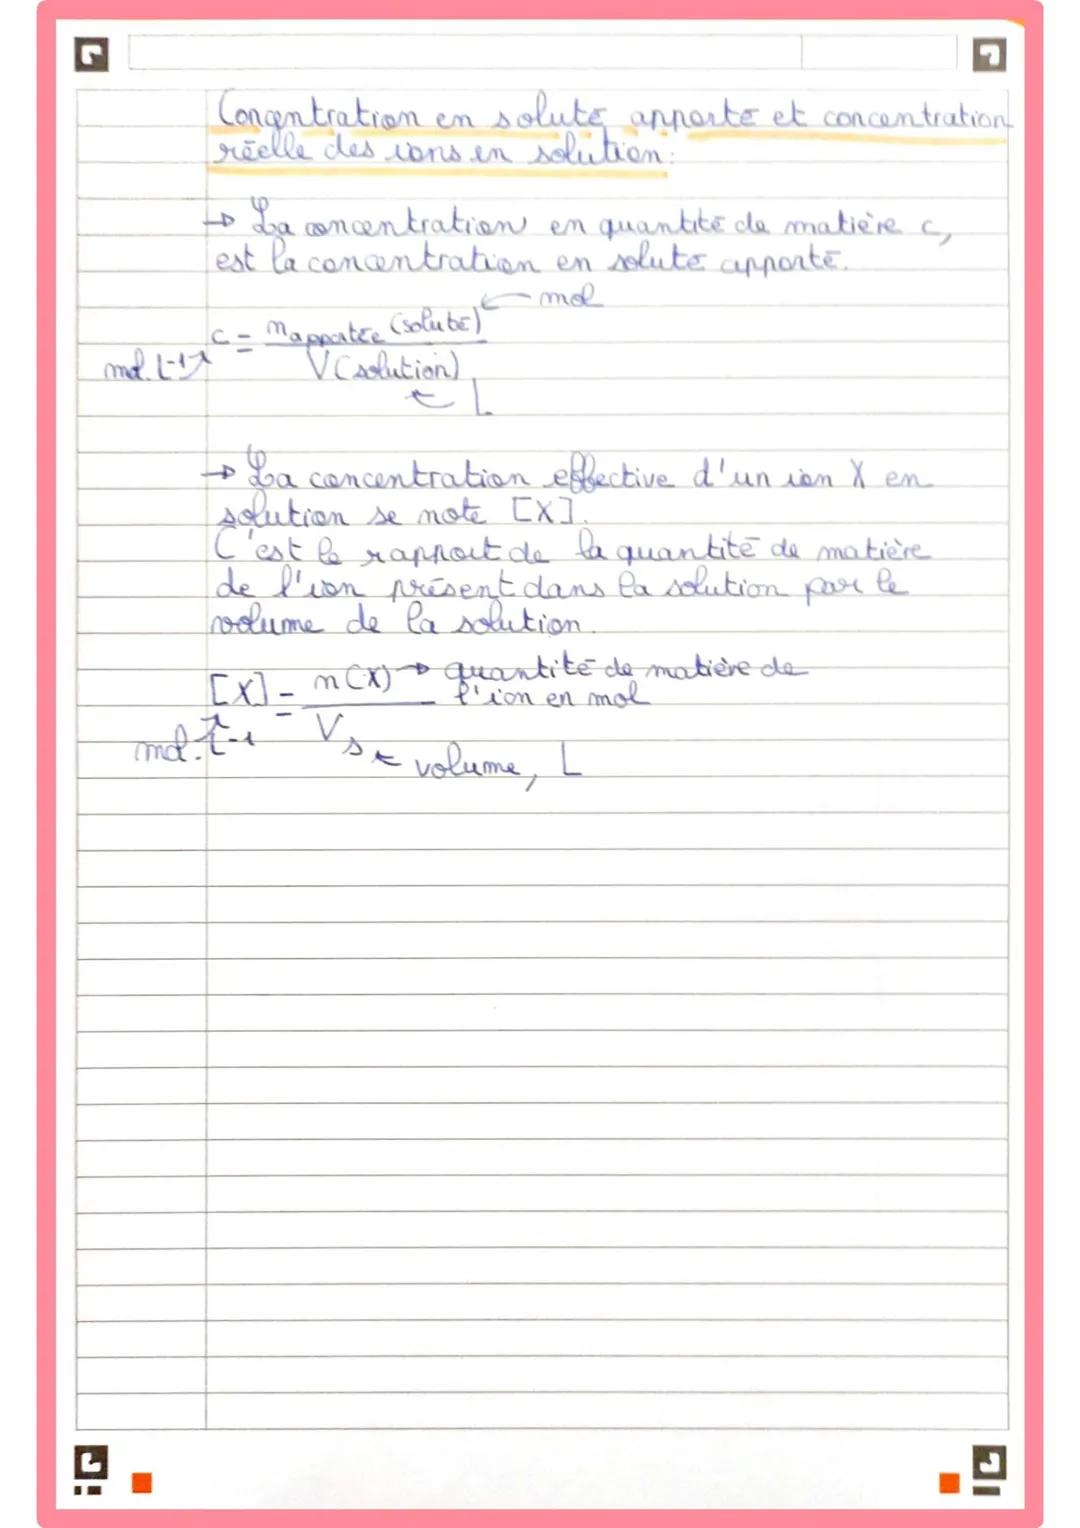 Concentration en soluté apporté et concentration
réelle des ions en solution:
→ La concentration en quantité de matière c,
est la concentration en soluté apporté.
← mol
c = n apportée (soluté)
mol.L-1
V(solution)
← L
→ La concentration effective d'un ion X en
solution se note [X].
C'est le rapport de la quantité de matière
de l'ion présent dans la solution par le
volume de la solution.
[X] = n(X) → quantité de matière de
l'ion en mol
mol.L-1
Vs ← volume, L